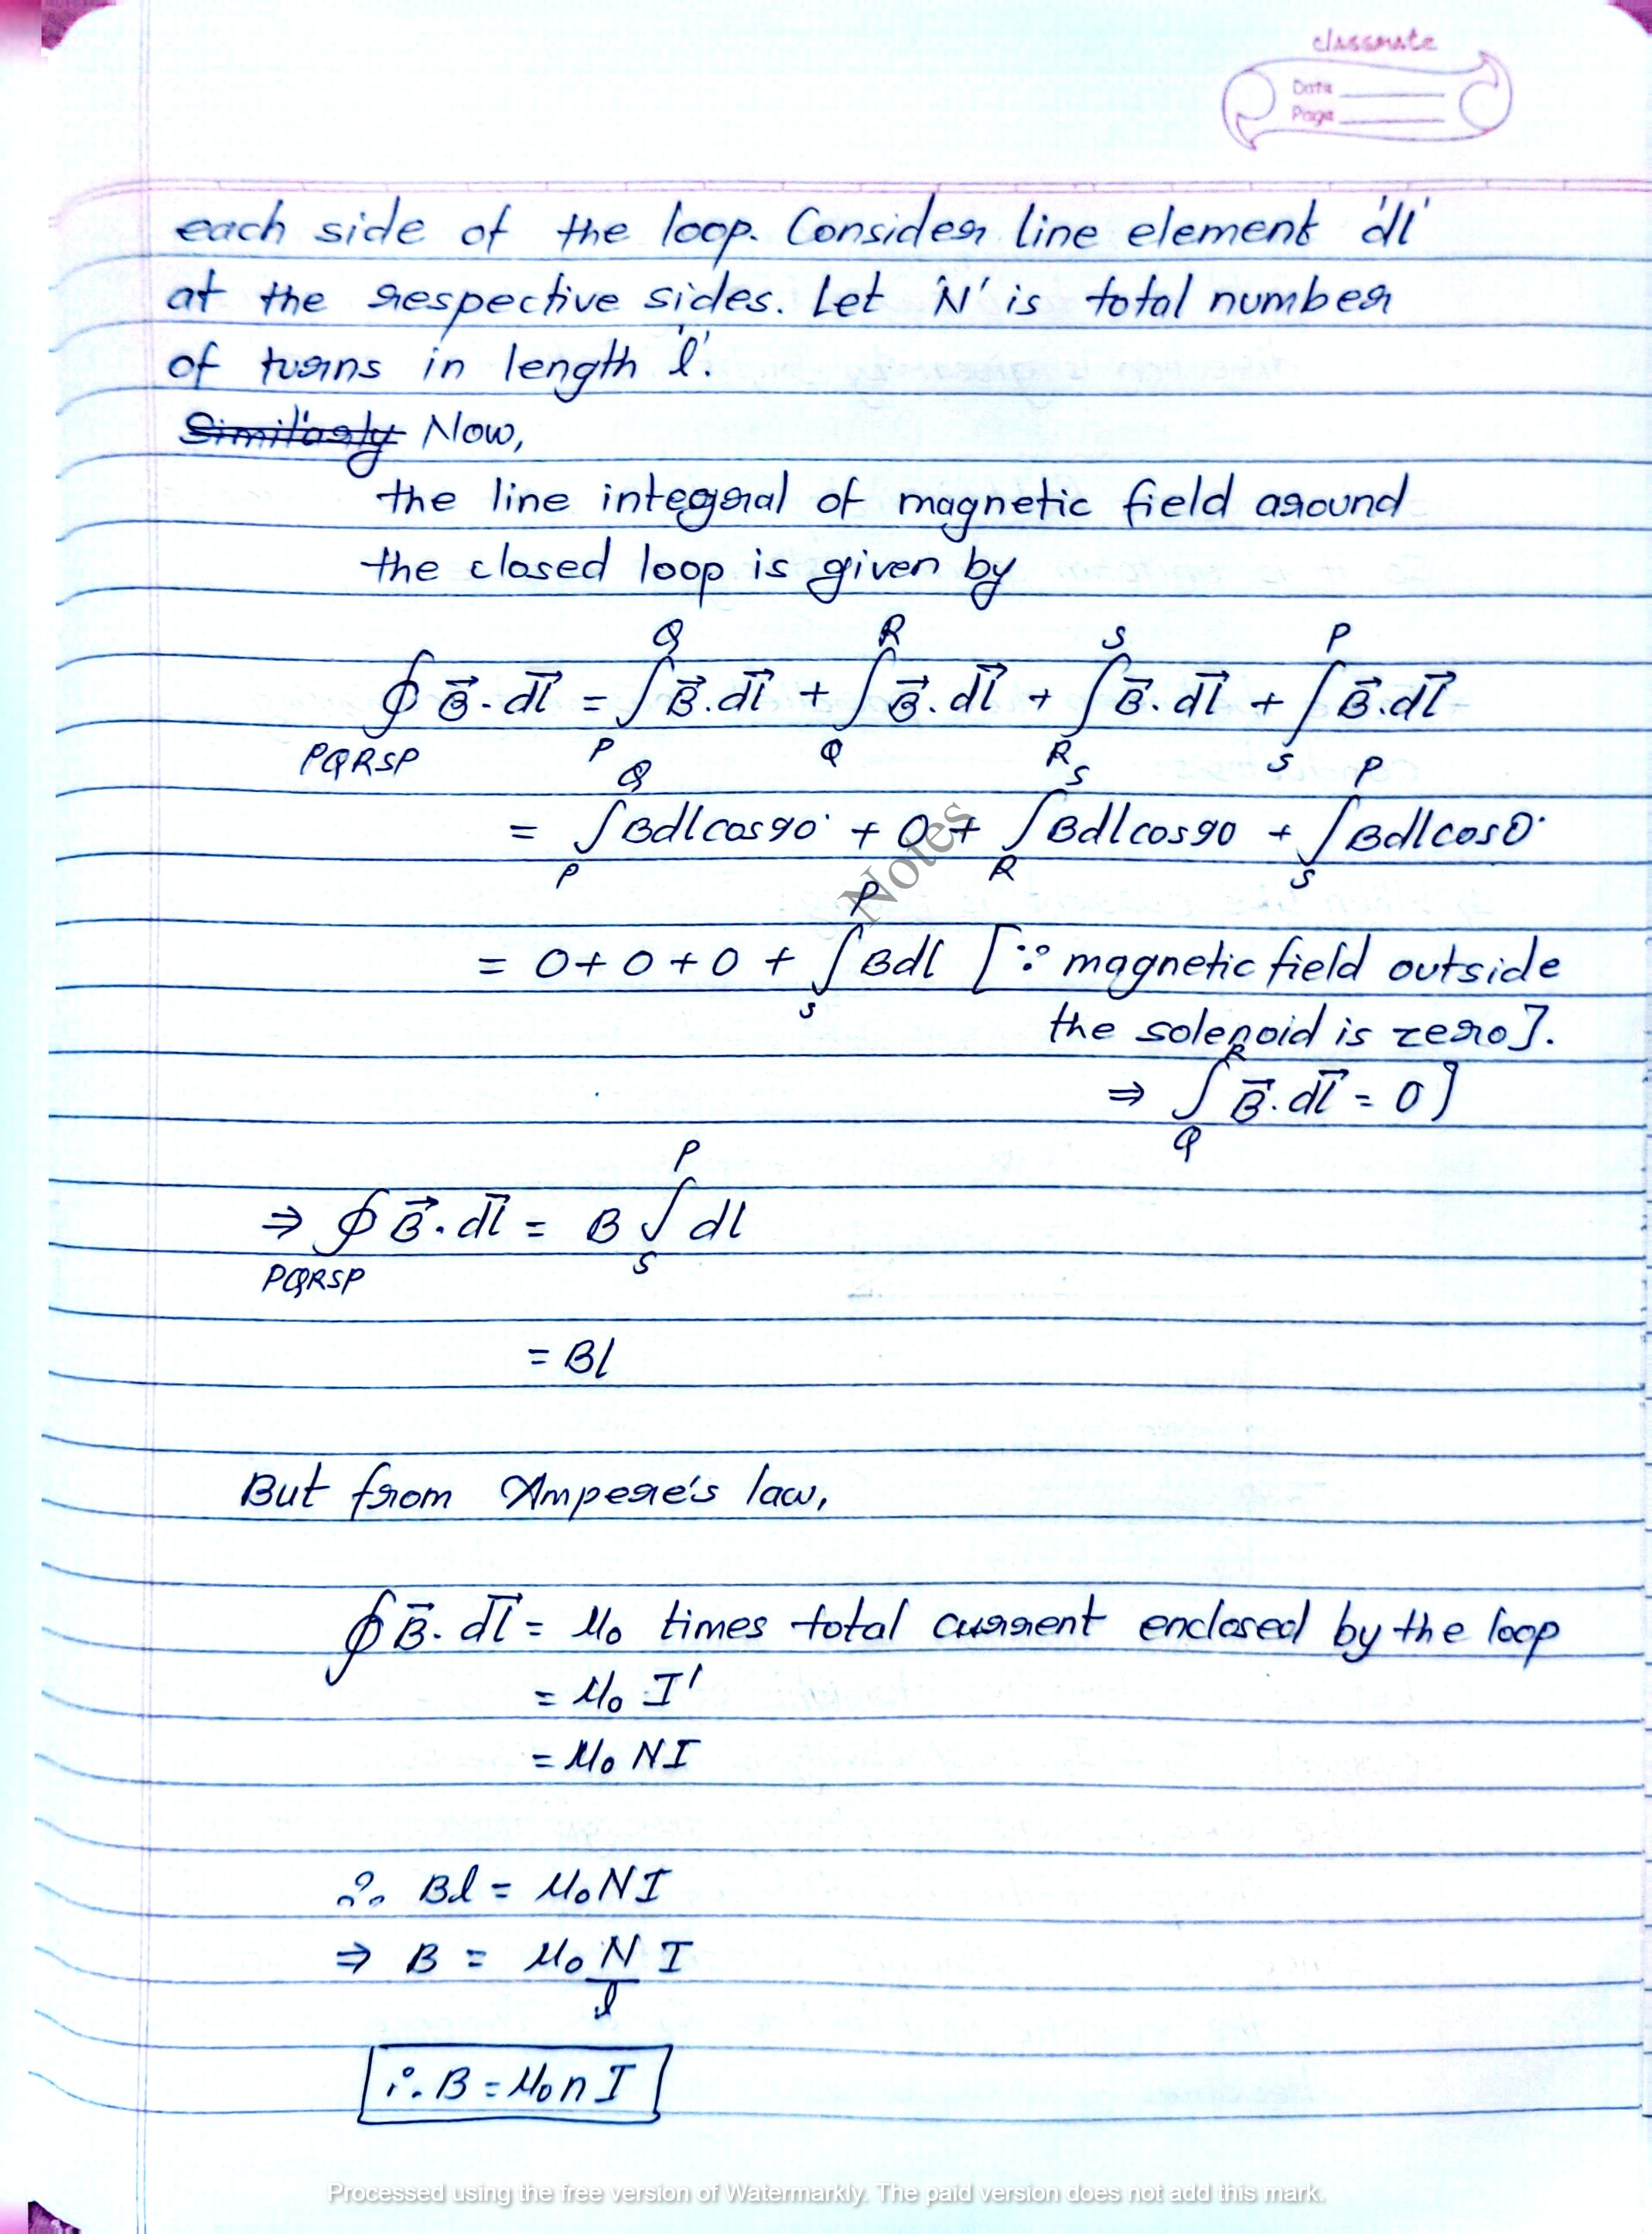 classmate
Date
Page
each side of the loop. Consider line element 'dl'
at the respective sides. Let 'N' is total number
of turns in length 'l'.
Similarly Now,
the line integral of magnetic field around
the closed loop is given by
∮_PQRSP B⃗.dl⃗ = ∫_P^Q B⃗.dl⃗ + ∫_Q^R B⃗.dl⃗ + ∫_R^S B⃗.dl⃗ + ∫_S^P B⃗.dl⃗
= ∫_P^Q Bdlcos90° + 0 + ∫_R^S Bdlcos90 + ∫_S^P Bdlcos0°
Notes
= 0+0+0+ ∫_S^P Bdl [∵ magnetic field outside
the solenoid is zero].
⇒ ∫_Q^R B⃗.dl⃗ = 0]
⇒ ∮_PQRSP B⃗.dl⃗ = B ∫_S^P dl
= Bl
But from Ampere's law,
∮ B⃗.dl⃗ = μ₀ times total current enclosed by the loop
= μ₀ I'
= μ₀ NI
∴ Bl = μ₀NI
⇒ B = μ₀ N/l I
∴ B = μ₀nI
Processed using the free version of Watermarkly. The paid version does not add this mark.